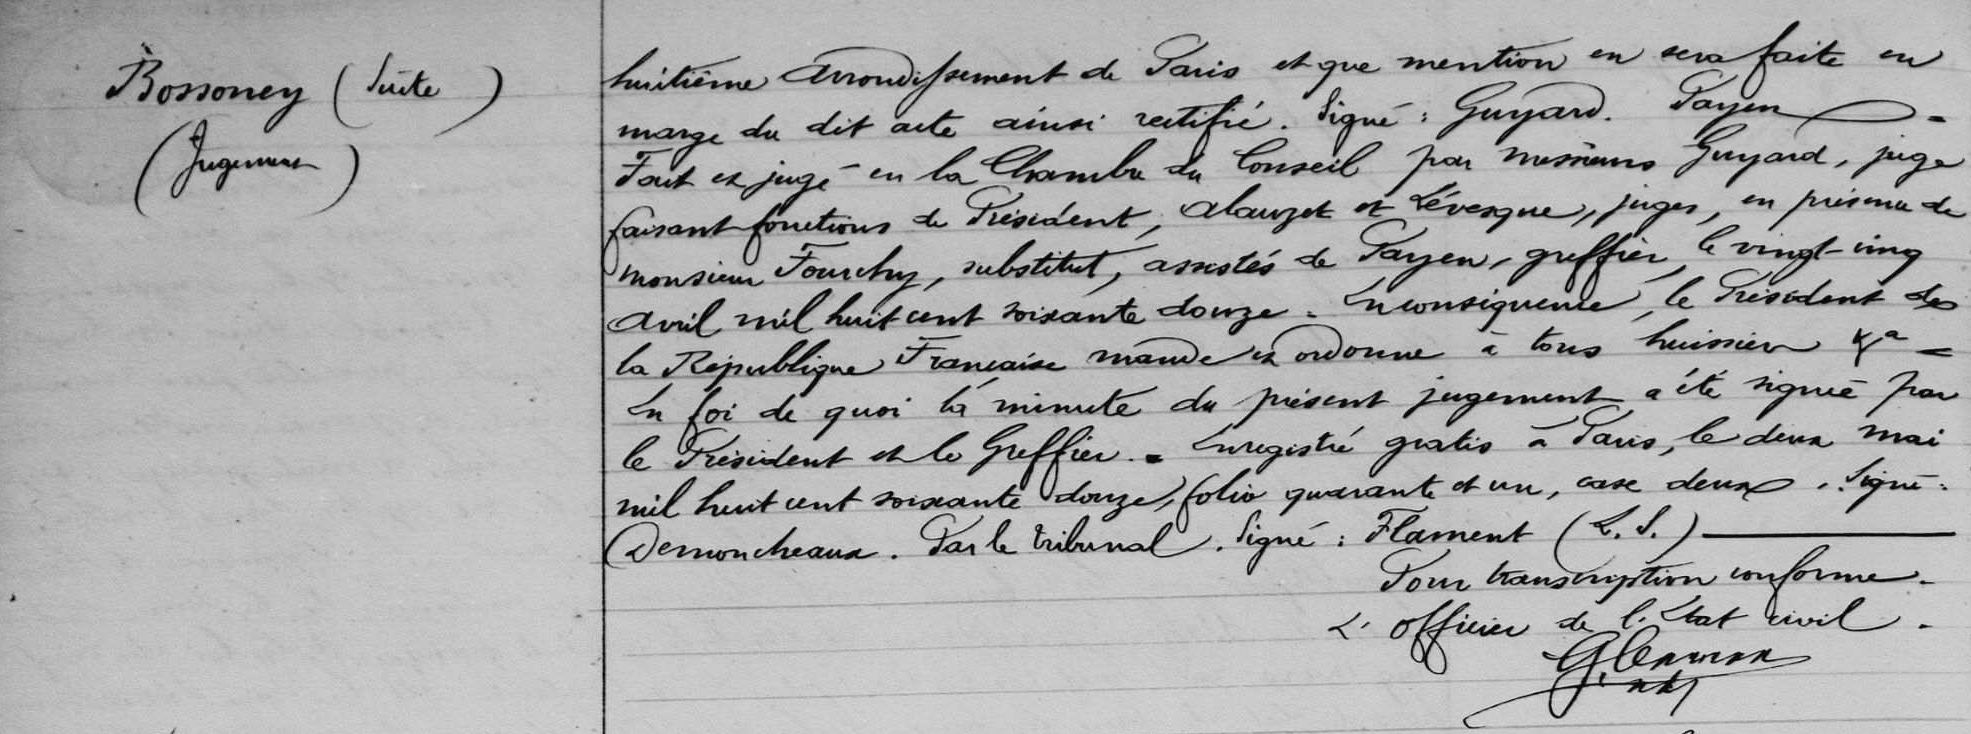 Bossoney (Suite)
(Jugement)
huitième Arrondissement de Paris et que mention en sera faite en
marge du dit acte ainsi rectifié. Signé : Guyard. Payen -
Fait et jugé en la Chambre du Conseil par messieurs Guyard, juge
faisant fonctions de Président, Alauzet et Lévesque, juges, en présence de
monsieur Fourchy, substitut, assistés de Payen, greffier, le vingt-cinq
avril mil huit cent soixante douze. En conséquence, le Président de
la République Française mande et ordonne à tous huissiers &a -
En foi de quoi la minute du présent jugement a été signée par
le Président et le Greffier. - Enregistré gratis à Paris, le deux mai
mil huit cent soixante douze, folio quarante et un, case deux. Signé :
Demoncheaux. Par le tribunal. Signé : Flament (L. S.)
Pour transcription conforme.
L'officier de l'Etat civil.